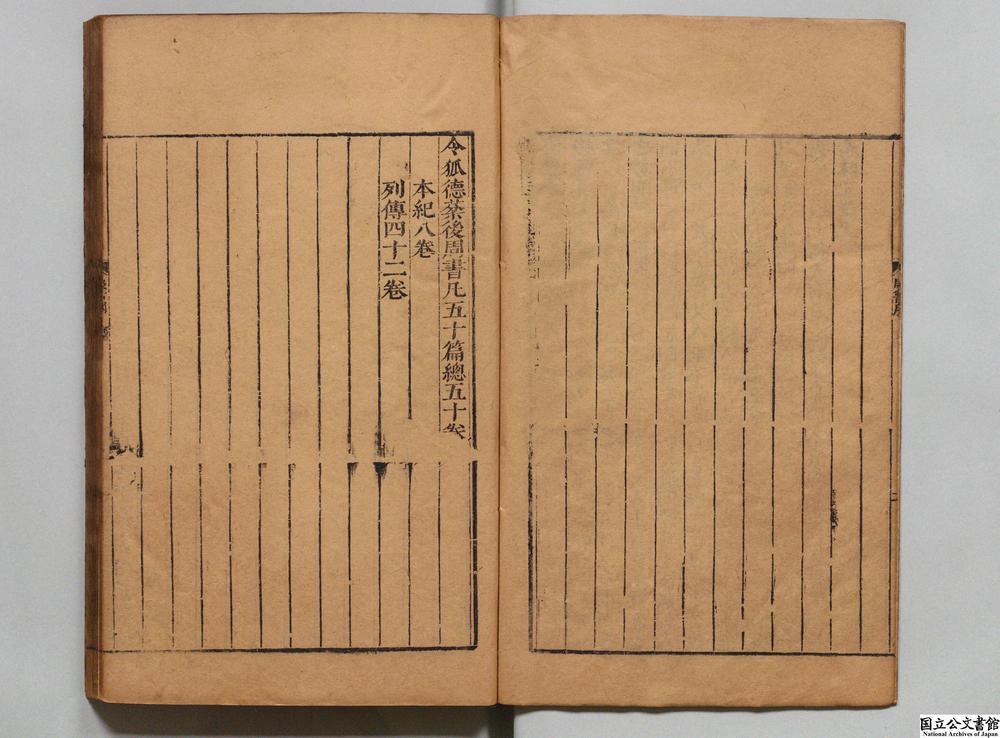 令狐德棻後周書凡五十篇總五十卷
本紀八卷
列傳四十二卷
国立公文書館
National Archives of Japan